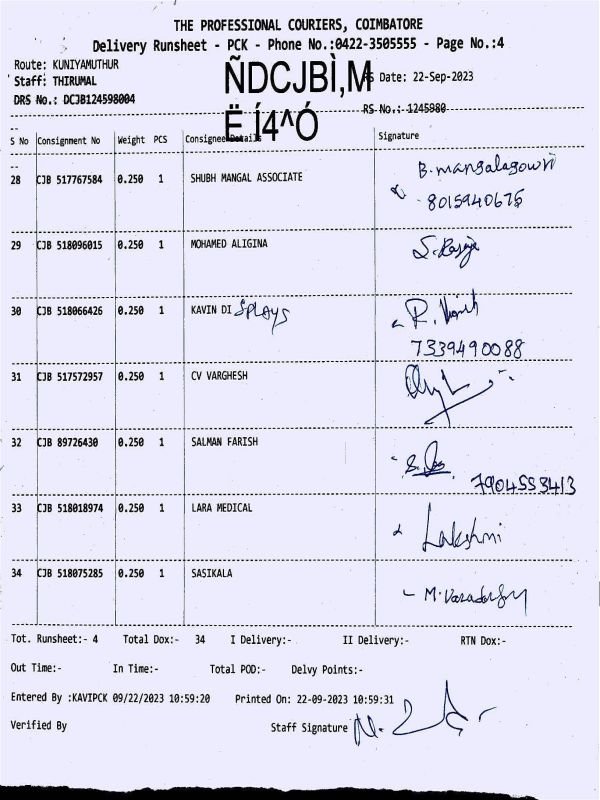 THE PROFESSIONAL COURIERS, COIMBATORE
Delivery Runsheet - PCK - Phone No.:0422-3505555 - Page No.:4
Route: KUNIYAMUTHUR
Staff: THIRUMAL
ÑDCJBÌ,M
RS Date: 22-Sep-2023
DRS No.: DCJB124598004
Ë Í4^Ó
RS No.: 1245980
S No Consignment No Weight PCS Consignee Details Signature
28 CJB 517767584 0.250 1 SHUBH MANGAL ASSOCIATE B.mangalagowri
8015940675
29 CJB 518096015 0.250 1 MOHAMED ALIGINA
30 CJB 518066426 0.250 1 KAVIN DI Splays R.
7339490088
31 CJB 517572957 0.250 1 CV VARGHESH
32 CJB 89726430 0.250 1 SALMAN FARISH
7904553413
33 CJB 518018974 0.250 1 LARA MEDICAL Lakshmi
34 CJB 518075285 0.250 1 SASIKALA M.
Tot. Runsheet:- 4 Total Dox:- 34 I Delivery:- II Delivery:- RTN Dox:-
Out Time:- In Time:- Total POD:- Delvy Points:-
Entered By :KAVIPCK 09/22/2023 10:59:20 Printed On: 22-09-2023 10:59:31
Verified By Staff Signature